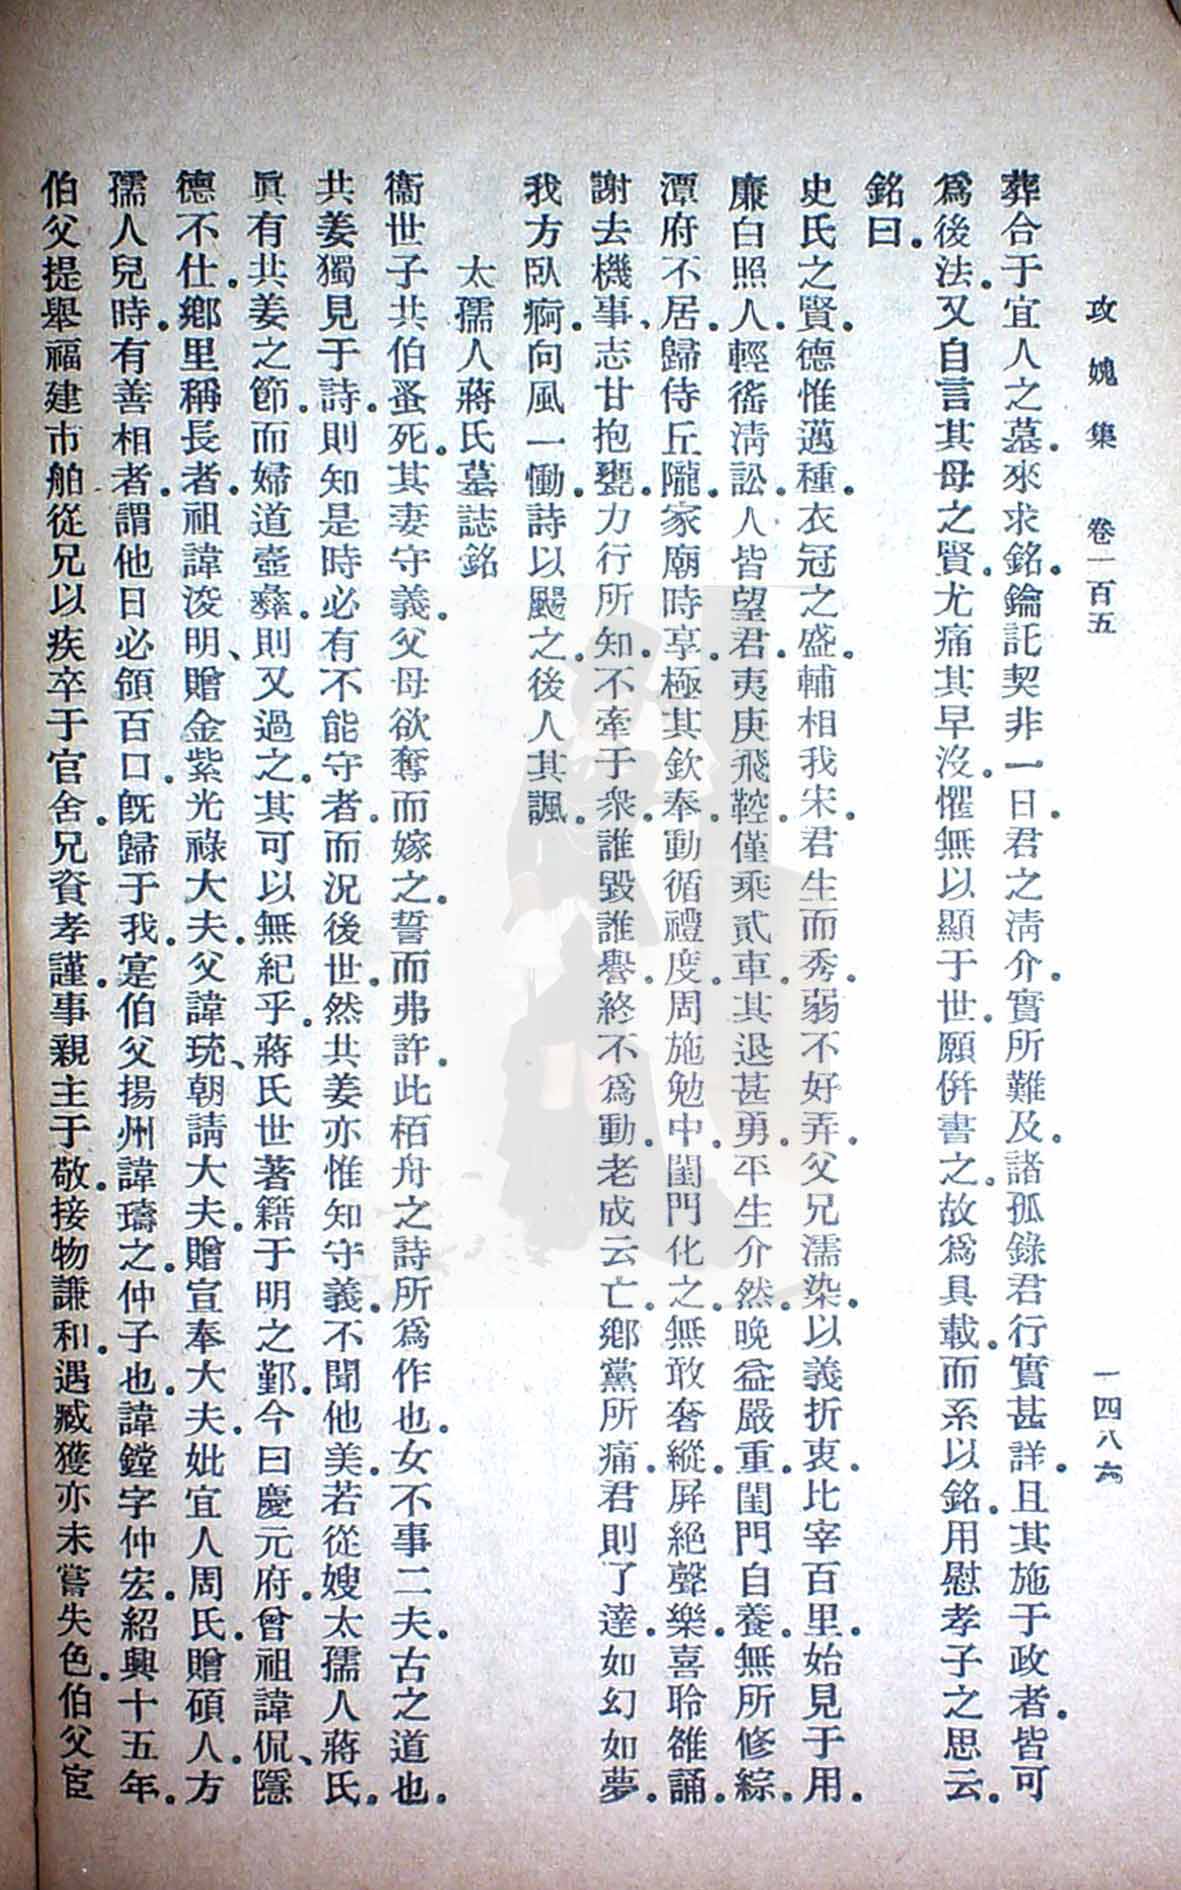 攻媿集 卷一百五 一四八六
葬合于宜人之墓。來求銘。鑰託契非一日。君之淸介。實所難及。諸孤錄君行實甚詳。且其施于政者。皆可
爲後法。又自言其母之賢。尤痛其早沒。懼無以顯于世。願併書之。故爲具載。而系以銘。用慰孝子之思云。
銘曰。
史氏之賢。德惟邁種。衣冠之盛。輔相我宋。君生而秀。弱不好弄。父兄濡染。以義折衷。比宰百里。始見于用。
廉白照人。輕徭淸訟。人皆望君。夷庚飛鞚。僅乘貳車。其退甚勇。平生介然。晚益嚴重。閨門自養。無所修綜。
潭府不居。歸侍丘隴。家廟時享。極其欽奉。動循禮度。周施勉中。閨門化之。無敢奢縱。屛絕聲樂。喜聆雒誦。
謝去機事、志甘抱甕。力行所知。不牽于衆。誰毀誰譽。終不爲動。老成云亡。鄕黨所痛。君則了達。如幻如夢。
我方臥痾。向風一慟。詩以颺之。後人其諷。
太孺人蔣氏墓誌銘
衞世子共伯蚤死。其妻守義。父母欲奪而嫁之。誓而弗許。此栢舟之詩所爲作也。女不事二夫。古之道也。
共姜獨見于詩。則知是時必有不能守者。而況後世。然共姜亦惟知守義。不聞他美。若從嫂太孺人蔣氏。
眞有共姜之節。而婦道壼彝。則又過之。其可以無紀乎。蔣氏世著籍于明之鄞。今曰慶元府。曾祖諱侃、隱
德不仕。鄕里稱長者。祖諱浚明、贈金紫光祿大夫。父諱珫、朝請大夫。贈宣奉大夫。妣宜人周氏。贈碩人。方
孺人兒時。有善相者。謂他日必領百口。旣歸于我。寔伯父揚州諱璹之仲子也。諱鏜字仲宏。紹興十五年。
伯父提舉福建市舶從兄以疾卒于官舍。兄資孝謹。事親主于敬。接物謙和。遇臧獲亦未嘗失色。伯父宦